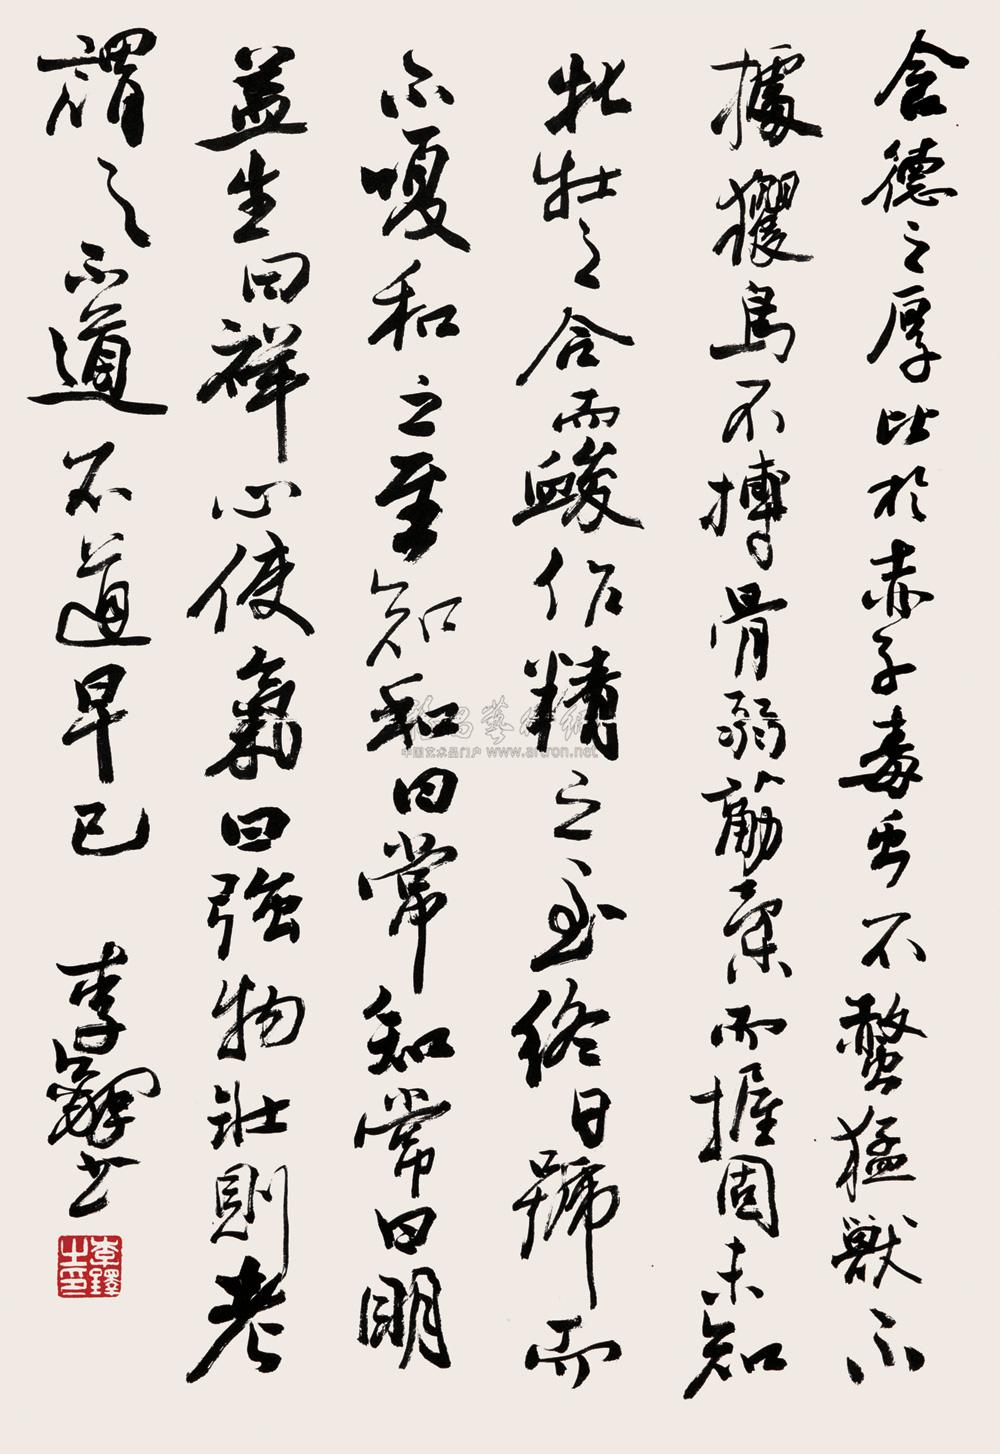 含德之厚比於赤子毒虫不螫猛獸不
據玃鳥不搏骨弱筋柔而握固未知
牝牡之合而朘作精之至終日號而
不嗄和之至知和曰常知常曰明
益生曰祥心使氣曰強物壯則老
謂之不道不道早已
李鐸书
李鐸之印
www.artron.net
中国艺术品门户